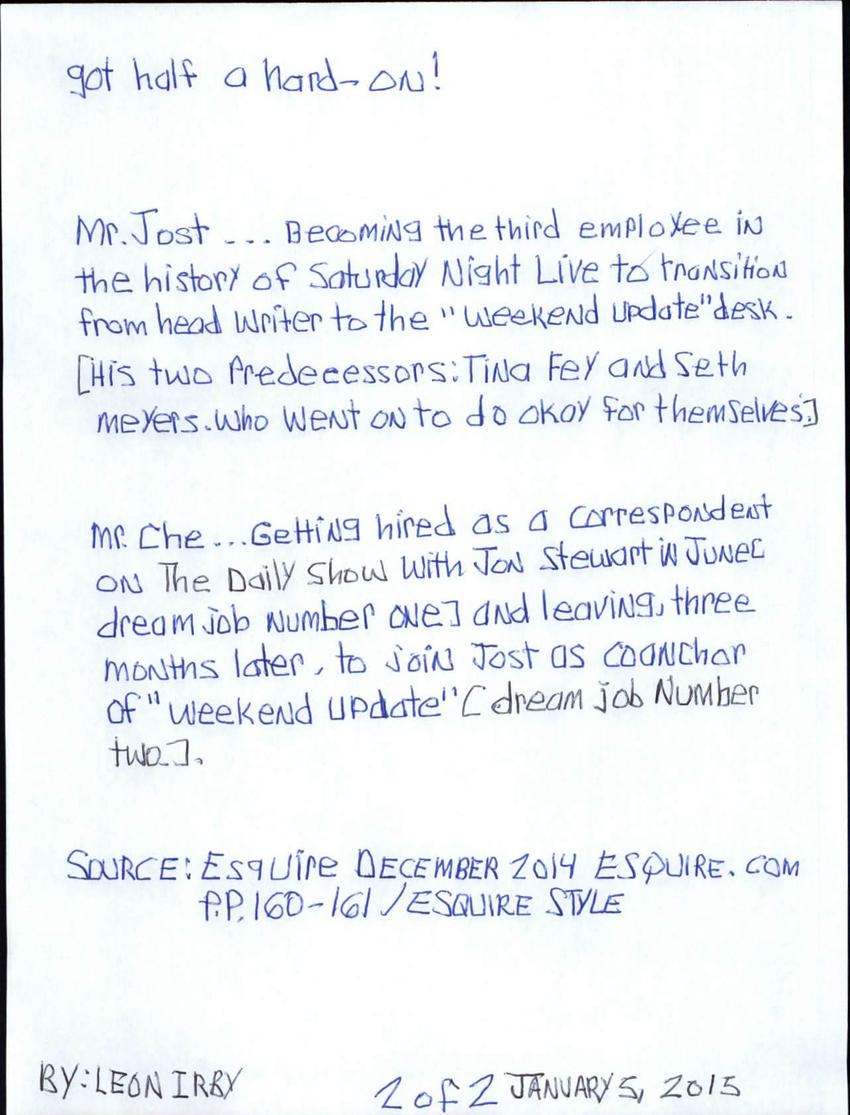 got half a hard-on!
Mr. Jost ... Becoming the third employee in
the history of Saturday Night Live to transition
from head writer to the "Weekend Update" desk.
[His two Predecessors: Tina Fey and Seth
meyers. Who went on to do okay for themselves.]
Mr. Che... Getting hired as a correspondent
on The Daily Show With Jon Stewart in June[
dream job number one] and leaving, three
months later, to join Jost as coanchor
of "Weekend Update" [dream job Number
two.].
SOURCE: Esquire DECEMBER 2014 ESQUIRE.COM
P.P. 160-161/ESQUIRE STYLE
BY: LEON IRBY 2 of 2 JANUARY 5, 2015